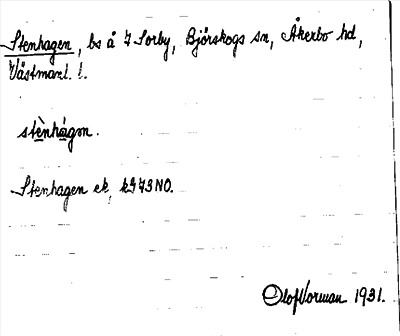 Stenhagen, bs å 7 Sorby, Björskogs sn, Åkerbo hd,
Västmanl. l.
stènhágɷn.
Stenhagen ek, k 9473 NO.
Olof Norman 1931.